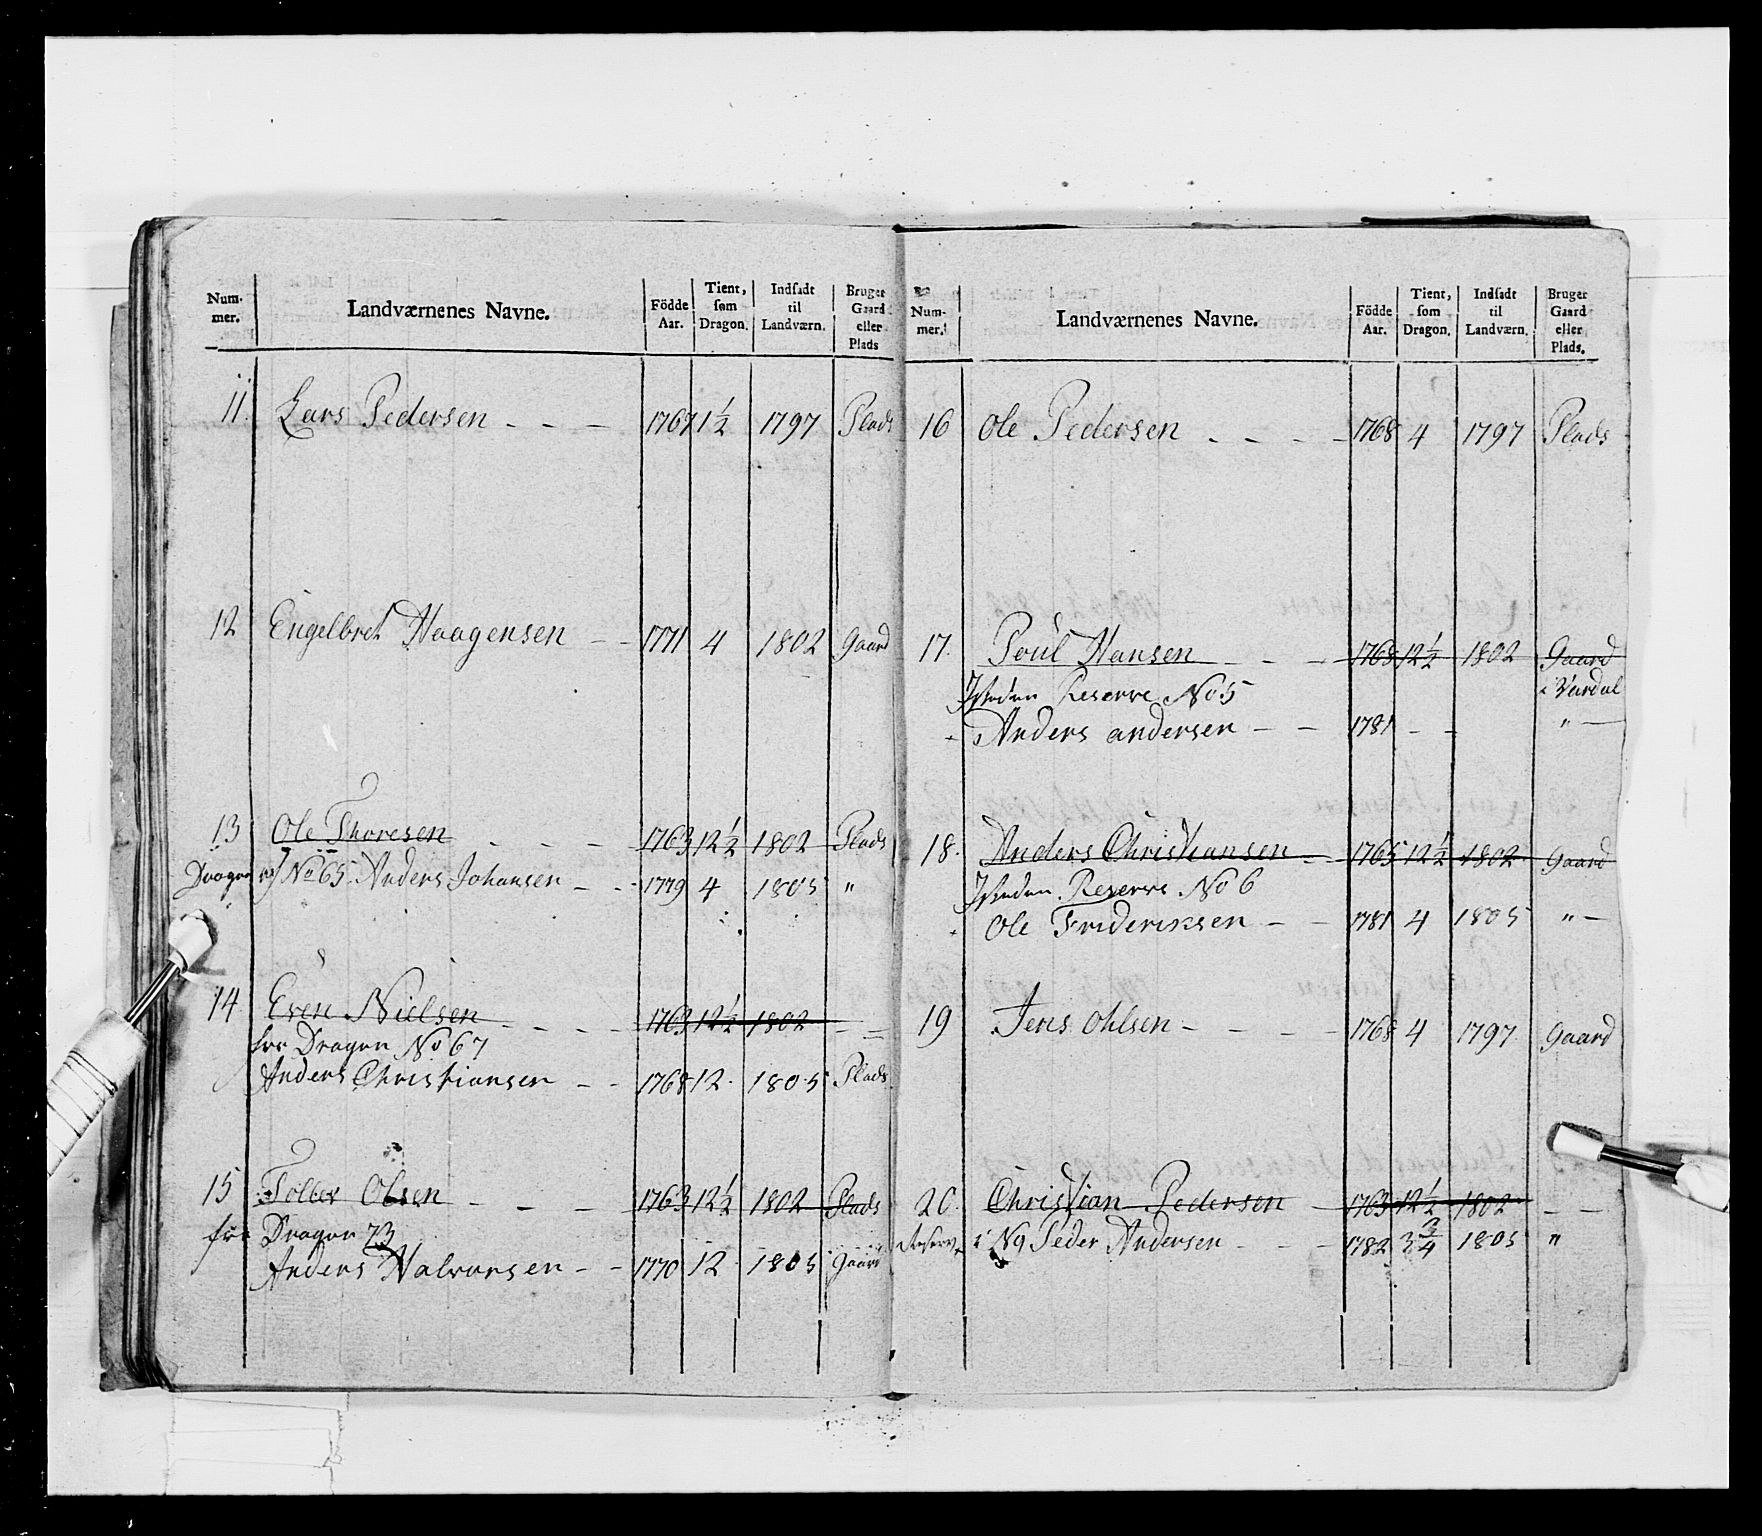 Num-
mer.
Landværnenes Navne.
Födde
Aar.
Tient,
som
Dragon.
Indsadt
til
Landværn.
Bruger
Gaard
eller
Plads
11. Lars Pedersen - - - 1767 1½ 1797 Plads
12 Engelbret Haagensen - - 1771 4 1802 Gaard
13 Ole Thoresen - - - 1763 12½ 1802 Plads
No 65 Anders Johansen - - 1779 4 1805 "
14 Even Nielsen - - - - 1763 12½ 1802 - -
fra Dragon No 67
Anders Christiansen - - 1768 12. 1805 Plads
15 Olsen - - - 1763 12½ 1802 Plads
fra Dragon 73
Anders Halvorsen - - 1770 12 1805 Gaard
Num-
mer.
Landværnenes Navne.
Födde
Aar.
Tient,
som
Dragon.
Indsadt
til
Landværn.
Bruger
Gaard
eller
Plads.
16 Ole Pedersen - - - - 1768 4 1797 Plads
17. Poul Hansen - - - 1763 12½ 1802 Gaard
i Vardal
Reserve No 5
Anders andersen - - 1781 - - " -
18. Anders Christiansen - 1765 12½ 1802 Gaard
Reserve No 6
Ole Frideriksen - - 1781 4 1805 " -
19 Jens Ohlsen - - - - 1768 4 1797 Gaard
20. Christian Pedersen - 1763 12½ 1802 - -
N9 Peder Andersen - - - 1782 3¾ 1805 "